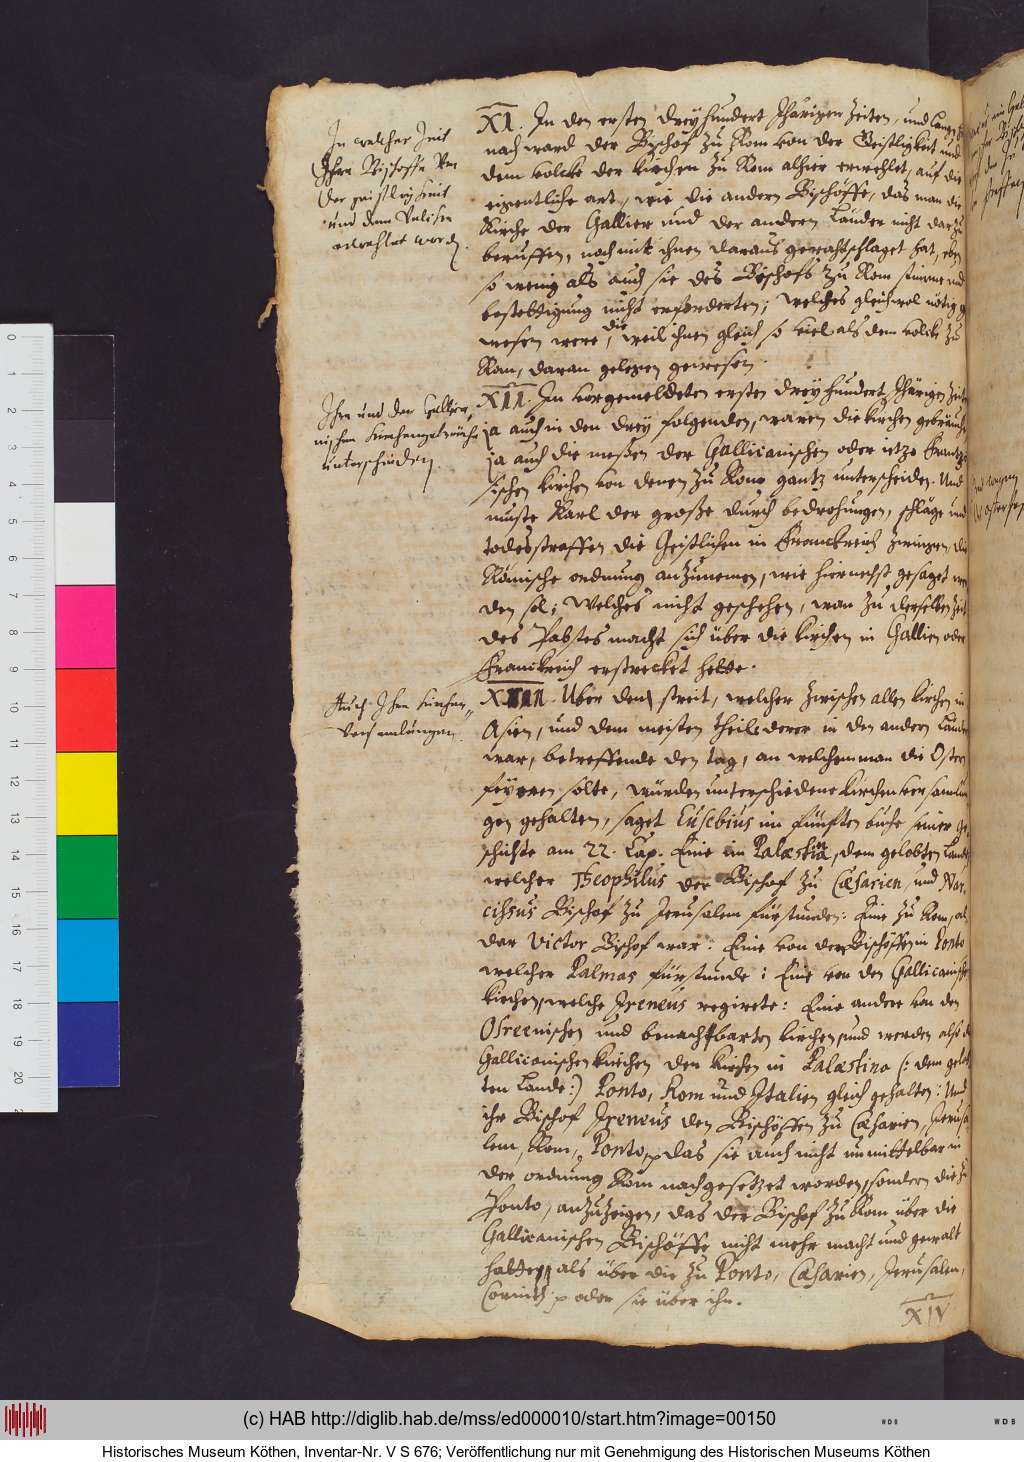 In welcher Zeit
Ihre Bischoffe von
der geistligkeit
und dem Volcke
erwehlet word.
XI. In den ersten dreyhundert Jhärigen Zeiten, und lange
nach ward der Bischof zu Rom von der Geistligkeit und
dem volcke der kirchen zu Rom alhier erwehlet, auf die
eigentliche art, wie die andern Bischöffe, das man die
Kirche der Gallier und der andern Länder nicht darzu
beruffen, noch mit ihnen daraus gerahtschlaget hat, eben
so wenig als auch sie des Bischofs zu Rom stimme und
bestettigung nicht erforderten; welches gleichwol nötig ge
wesen were, die weil ihnen gleich so viel als dem volcke zu
Rom, daran gelegen gewesen.
Ihre und der Gallica
nischen kirchengebräuche
unterschieden.
XII. In vorgemeldeten ersten dreyhundert Jhärigen Zeiten
ja auch in den drey folgenden, waren die kirchen gebräuche
ja auch die meßen der Gallicanischen oder ietzo Frantzö
sischen kirchen von denen zu Rom gantz unterscheiden. Und
muste Karl der große durch bedrohungen, schläge und
todesstraffen die Geistlichen in Franckreich zwingen, die
Römische ordnung anzunemen, wie hiernechst gesaget wer
den sol; Welches nicht geschehen, wan zu derselben Zeit
des Pabstes macht sich über die kirchen in Gallien oder
Franckreich erstrecket hette.
Auch Ihre kirchen-
versamlungen.
XIII. Uber den streit, welcher zwischen allen kirchen in
Asien, und dem meisten theile derer in den andern Länder
war, betreffende den tag, an welchem man die Oster
feyren solte, würden unterschiedene kirchen versamlun
gen gehalten, saget Eusebius im fünften buche seiner Ge
schichte am 22. Cap. Eine im Palæstina, dem gelobten Lande
welcher Theophilus der Bischof zu Cæsarien, und Nar-
cissus Bischof zu Jerusalem fürstunden: Eine zu Rom, al
dar Victor Bischof war: Eine von den Bischöffen in Ponto
welcher Palmas fürstunde: Eine von den Gallicanischen
kirchen, welche Ireneus regirete: Eine andere von den
Osreenischen und benachbarten kirchen, und werden also die
Gallicanischen kirchen den kirchen in Palæstina (: dem gelob
ten Lande:) Ponto, Rom und Italien gleich gehalten: Und
ihr Bischof Ireneus den Bischöffen zu Cæsarien, Jerusa
lem, Rom, Ponto, das sie auch nicht unmittelbar in
der ordnung Rom nachgesetzet worden, sondern die zu
Ponto, anzuzeigen, das der Bischof zu Rom über die
Gallicanischen Bischöffe nicht mehr macht und gewalt
hatte, als über die zu Ponto, Cæsarien, Jerusalem,
Corinth oder sie über ihn.
XIV
0 1 2 3 4 5 6 7 8 9 10 11 12 13 14 15 16 17 18 19 20
(c) HAB http://diglib.hab.de/mss/ed000010/start.htm?image=00150
WDB
WDB
Historisches Museum Köthen, Inventar-Nr. V S 676; Veröffentlichung nur mit Genehmigung des Historischen Museums Köthen